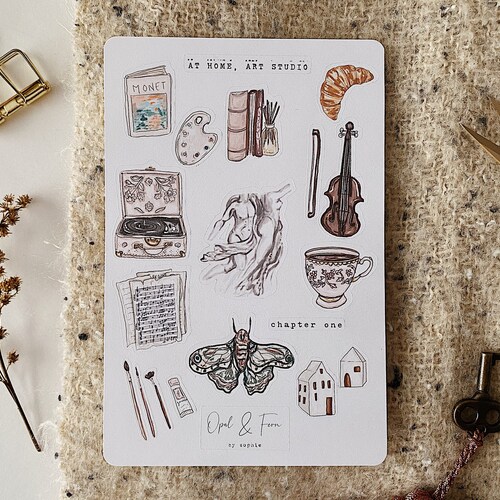 AT HOME, ART STUDIO
MONET
chapter one
Opal & Fern
by sophie